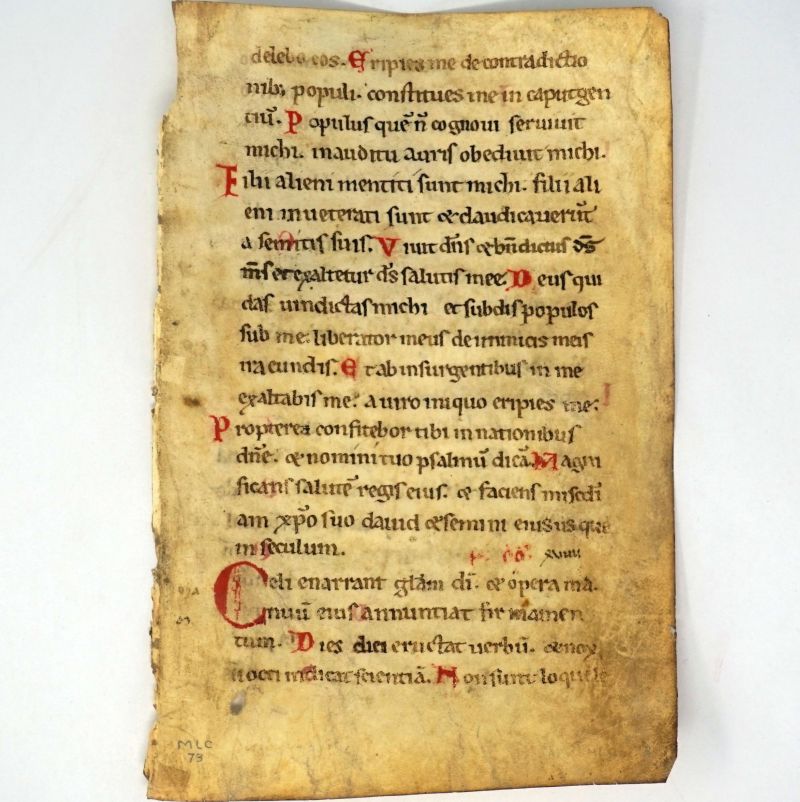 delebo eos. Eripies me de contradictio
nib; populi. constitues me in caput gen
tiū. Populus quē n̄ cognoui seruiuit
michi. in auditu auris obediuit michi.
Filii alieni mentiti sunt michi. filii ali
eni inueterati sunt & claudicauerūt
a semitis suis. Viuit dn̄s & bn̄dictus ds̄
m̄s et exaltetur ds̄ salutis mee. Deus qui
das uindictas michi et subdis populos
sub me: liberator meus de inimicis meis
iracundis. Et ab insurgentibus in me
exaltabis me: a uiro iniquo eripies me:
Propterea confitebor tibi in nationibus
dn̄e. & nomini tuo psalmū dicā. Magni
ficans salutē regis eius. & faciens misedī
am xp̄o suo dauid & semini eius usque
in seculum.
xuiii
Celi enarrant gl̄am dī. & opera ma.
nuū eius annuntiat firmamen
tum. Dies diei eructat uerbū. & nox
nocti indicat scientiā. Non sunt loquele
MLC
73